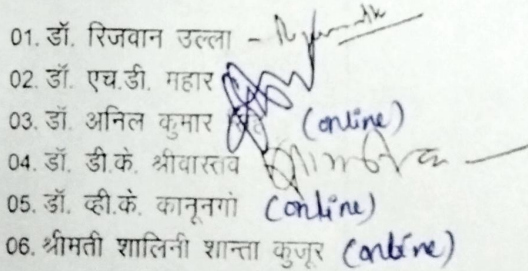 01. डॉ. रिजवान उल्ला -
02. डॉ. एच.डी. महार
03. डॉ. अनिल कुमार सिंह (online)
04. डॉ. डी.के. श्रीवास्तव
05. डॉ. व्ही.के. कानूनगो (online)
06. श्रीमती शालिनी शान्ता कुजूर (online)